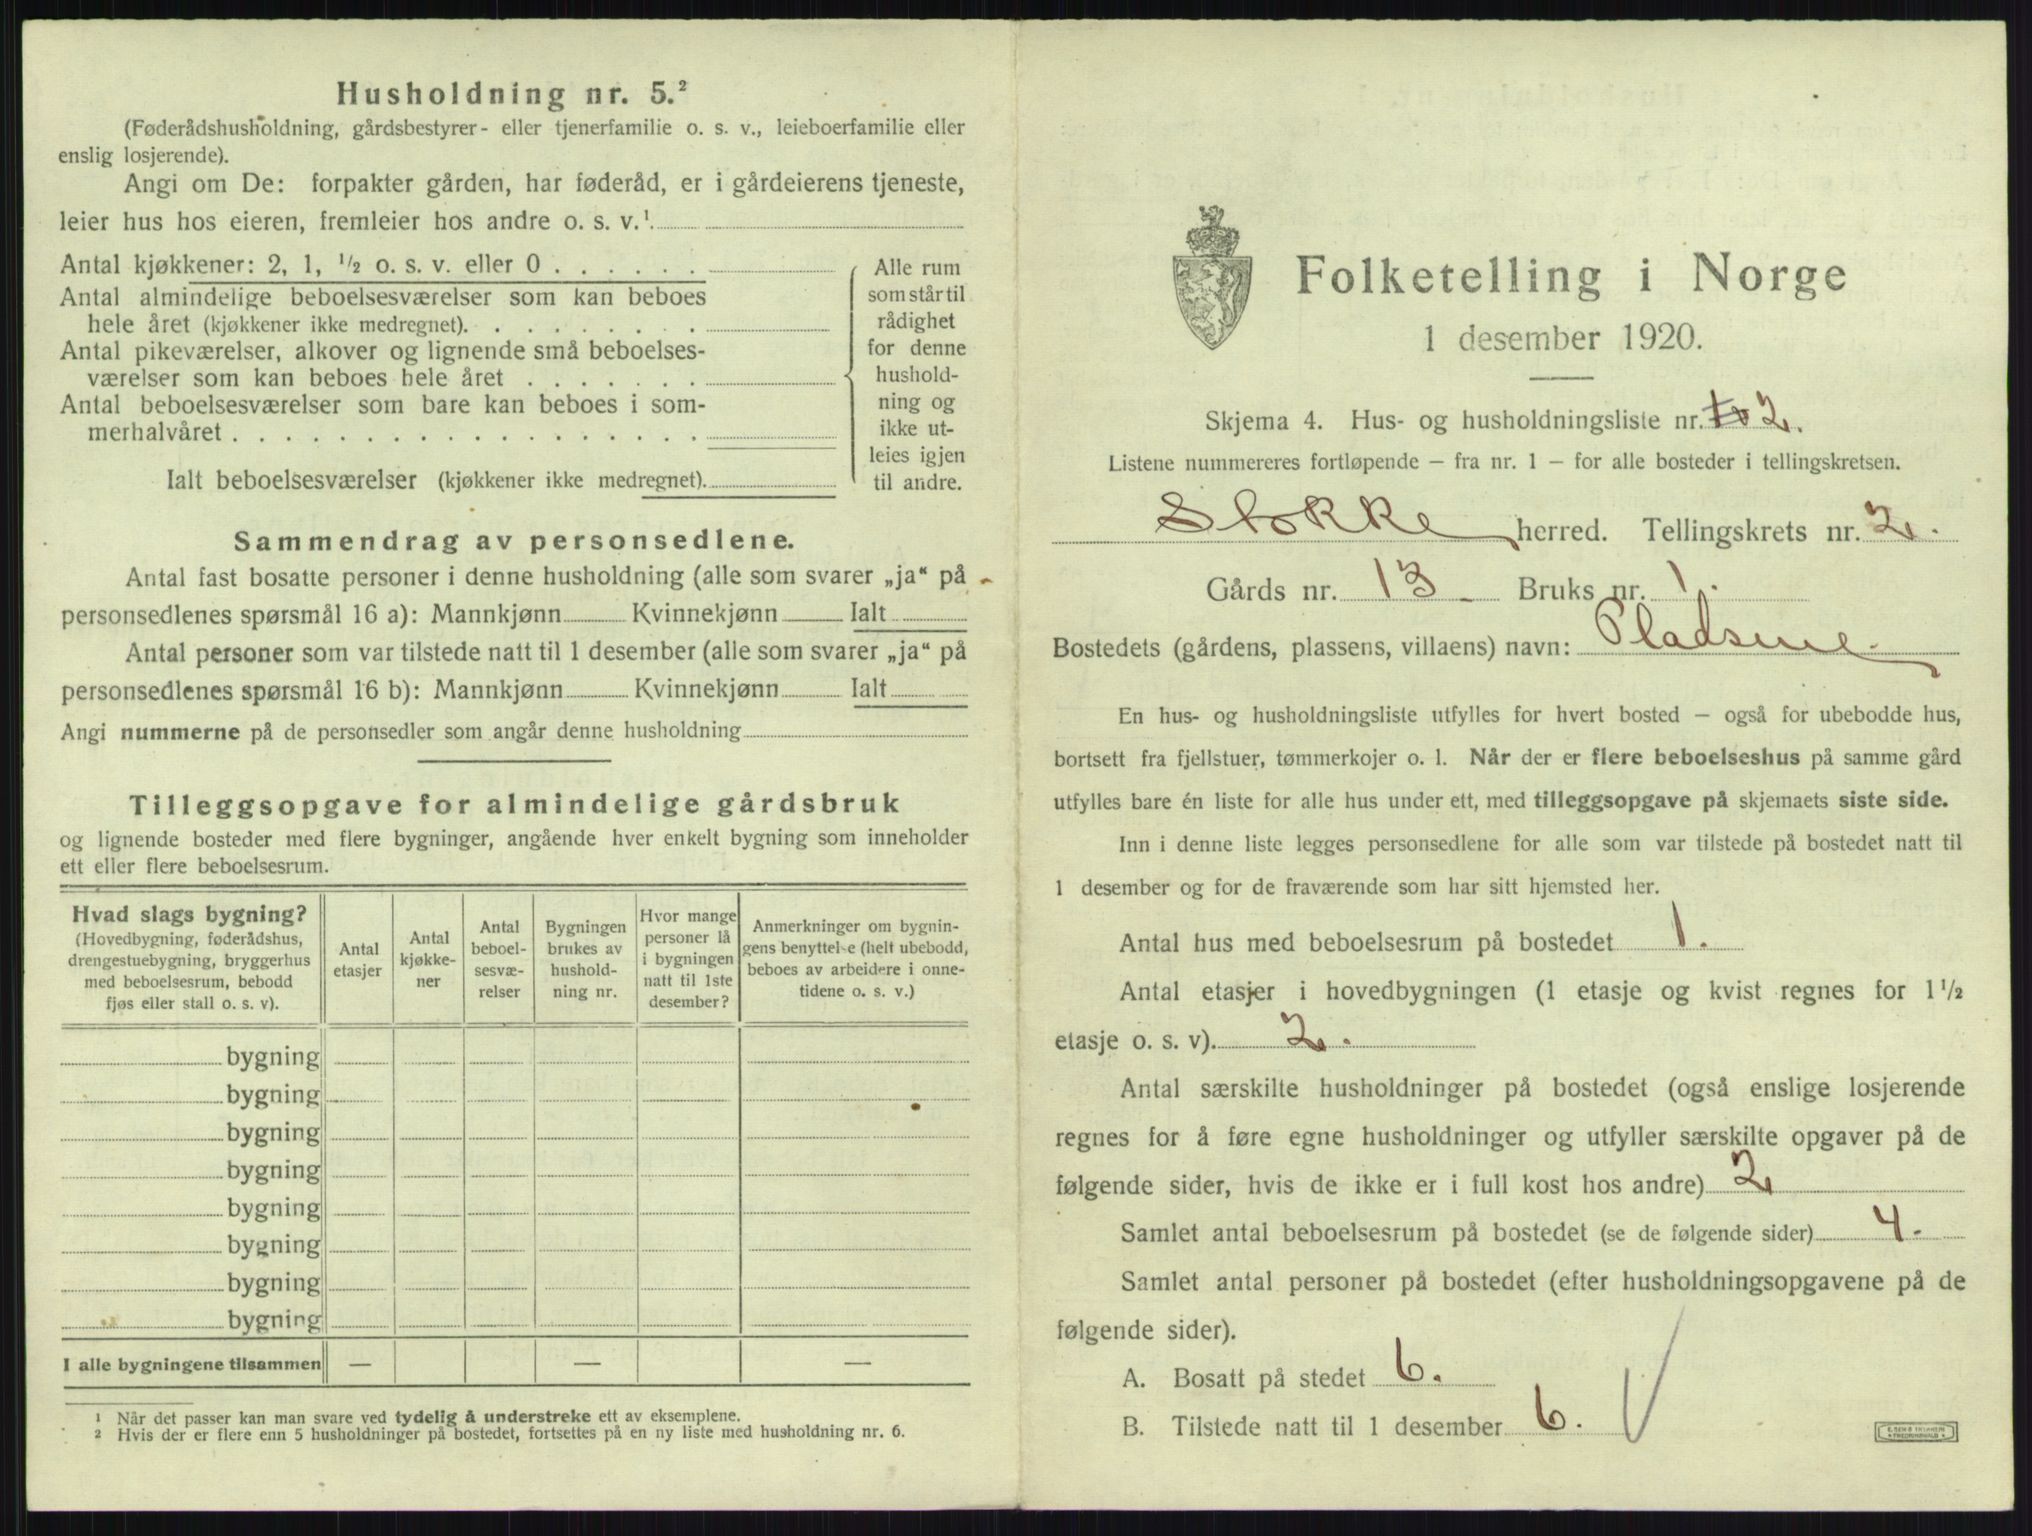 Husholdning nr. 5.²
(Føderådshusholdning, gårdsbestyrer- eller tjenerfamilie o. s. v., leieboerfamilie eller
enslig losjerende).
Angi om De: forpakter gården, har føderåd, er i gårdeierens tjeneste,
leier hus hos eieren, fremleier hos andre o. s. v.¹
Antal kjøkkener: 2, 1, ½ o. s. v. eller 0 . . . . . .
Antal almindelige beboelsesværelser som kan beboes
hele året (kjøkkener ikke medregnet). . . . . . . . .
Antal pikeværelser, alkover og lignende små beboelses-
værelser som kan beboes hele året . . . . . . .
Antal beboelsesværelser som bare kan beboes i som-
merhalvåret . . . . . . . . . . . . . . . . .
Ialt beboelsesværelser (kjøkkener ikke medregnet).
Alle rum
som står til
rådighet
for denne
hushold-
ning og
ikke ut-
leies igjen
til andre.
Sammendrag av personsedlene.
Antal fast bosatte personer i denne husholdning (alle som svarer „ja“ på
personsedlenes spørsmål 16 a): Mannkjønn Kvinnekjønn Ialt
Antal personer som var tilstede natt til 1 desember (alle som svarer „ja“ på
personsedlenes spørsmål 16 b): Mannkjønn Kvinnekjønn Ialt
Angi nummerne på de personsedler som angår denne husholdning
Tilleggsopgave for almindelige gårdsbruk
og lignende bosteder med flere bygninger, angående hver enkelt bygning som inneholder
ett eller flere beboelsesrum.
Hvad slags bygning?
(Hovedbygning, føderådshus,
drengestuebygning, bryggerhus
med beboelsesrum, bebodd
fjøs eller stall o. s. v).
Antal
etasjer
Antal
kjøkke-
ner
Antal
beboel-
sesvæ-
relser
Bygningen
brukes av
hushold-
ning nr.
Hvor mange
personer lå
i bygningen
natt til 1ste
desember?
Anmerkninger om bygnin-
gens benyttelse (helt ubebodd,
beboes av arbeidere i onne-
tidene o. s. v.)
bygning
bygning
bygning
bygning
bygning
bygning
bygning
bygning
I alle bygningene tilsammen — — —
¹ Når det passer kan man svare ved tydelig å understreke ett av eksemplene.
² Hvis der er flere enn 5 husholdninger på bostedet, fortsettes på en ny liste med husholdning nr. 6.
Folketelling i Norge
1 desember 1920.
Skjema 4. Hus- og husholdningsliste nr. 2.
Listene nummereres fortløpende – fra nr. 1 – for alle bosteder i tellingskretsen.
Stokke herred. Tellingskrets nr. 2.
Gårds nr. 13 Bruks nr. 1.
Bostedets (gårdens, plassens, villaens) navn: Pladsene.
En hus- og husholdningsliste utfylles for hvert bosted – også for ubebodde hus,
bortsett fra fjellstuer, tømmerkojer o. l. Når der er flere beboelseshus på samme gård
utfylles bare én liste for alle hus under ett, med tilleggsopgave på skjemaets siste side.
Inn i denne liste legges personsedlene for alle som var tilstede på bostedet natt til
1 desember og for de fraværende som har sitt hjemsted her.
Antal hus med beboelsesrum på bostedet 1.
Antal etasjer i hovedbygningen (1 etasje og kvist regnes for 1½
etasje o. s. v). 2.
Antal særskilte husholdninger på bostedet (også enslige losjerende
regnes for å føre egne husholdninger og utfyller særskilte opgaver på de
følgende sider, hvis de ikke er i full kost hos andre) 2
Samlet antal beboelsesrum på bostedet (se de følgende sider) 4.
Samlet antal personer på bostedet (efter husholdningsopgavene på de
følgende sider).
A. Bosatt på stedet 6.
B. Tilstede natt til 1 desember 6.